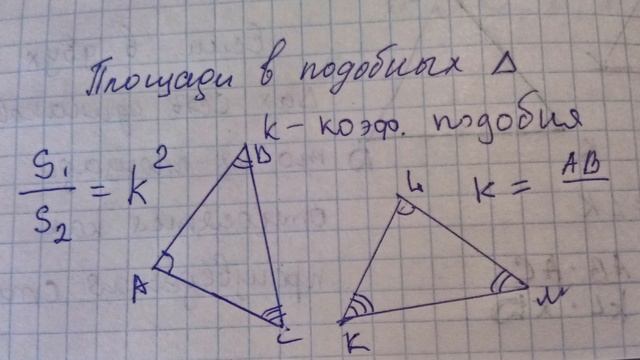 Площади в подобных Δ
k - коэф. подобия
S₁/S₂ = k²
K = AB
B
A
C
L
K
M